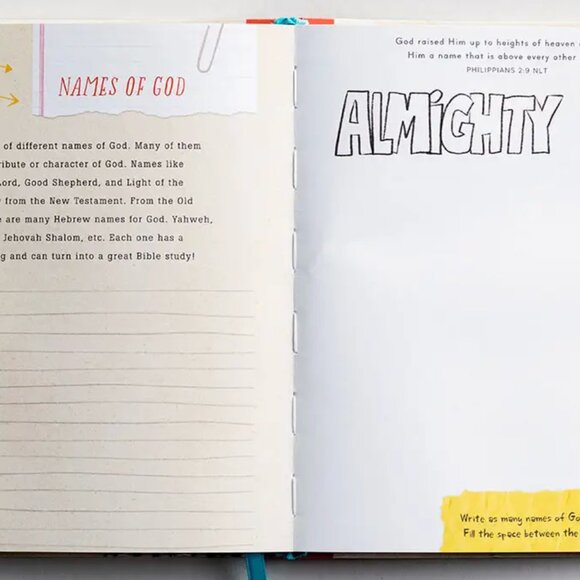 NAMES OF GOD
of different names of God. Many of them
tribute or character of God. Names like
Lord, Good Shepherd, and Light of the
from the New Testament. From the Old
e are many Hebrew names for God. Yahweh,
Jehovah Shalom, etc. Each one has a
g and can turn into a great Bible study!
God raised Him up to heights of heaven
Him a name that is above every other
PHILIPPIANS 2:9 NLT
ALMiGHTY
Write as many names of Go
Fill the space between the